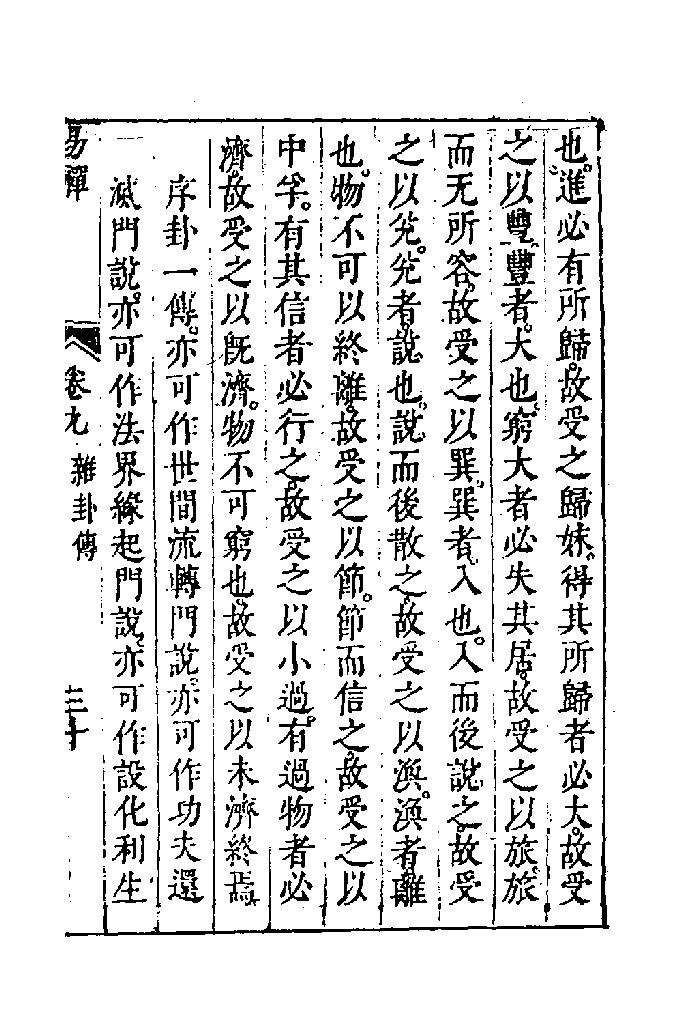 也。進必有所歸。故受之歸妹。得其所歸者必大。故受
之以豐。豐者。大也。窮大者必失其居。故受之以旅。旅
而无所容。故受之以巽。巽者。入也。入而後說之。故受
之以兊。兊者。說也。說而後散之。故受之以渙。渙者。離
也。物不可以終離。故受之以節。節而信之。故受之以
中孚。有其信者必行之。故受之以小過。有過物者必
濟。故受之以旣濟。物不可窮也。故受之以未濟終焉。
序卦一傳。亦可作世間流轉門說。亦可作功夫還
滅門說。亦可作法界緣起門說。亦可作設化利生
易禪 卷九 雜卦傳 三十